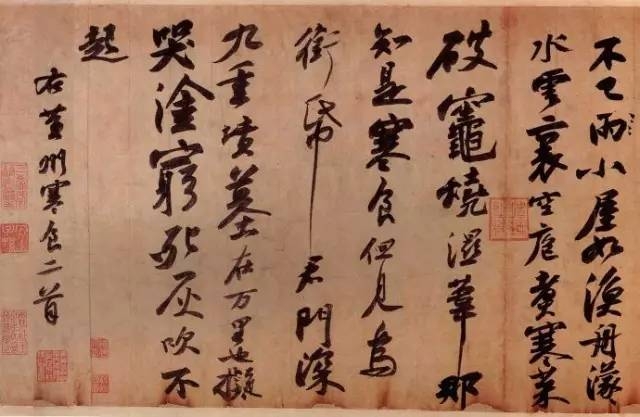 不已雨小屋如漁舟濛
水雲裏空庖煑寒菜
破竈燒濕葦那
知是寒食但見烏
銜帋君門深
九重墳墓在万里也擬
哭塗窮死灰吹不
起
右黃州寒食二首